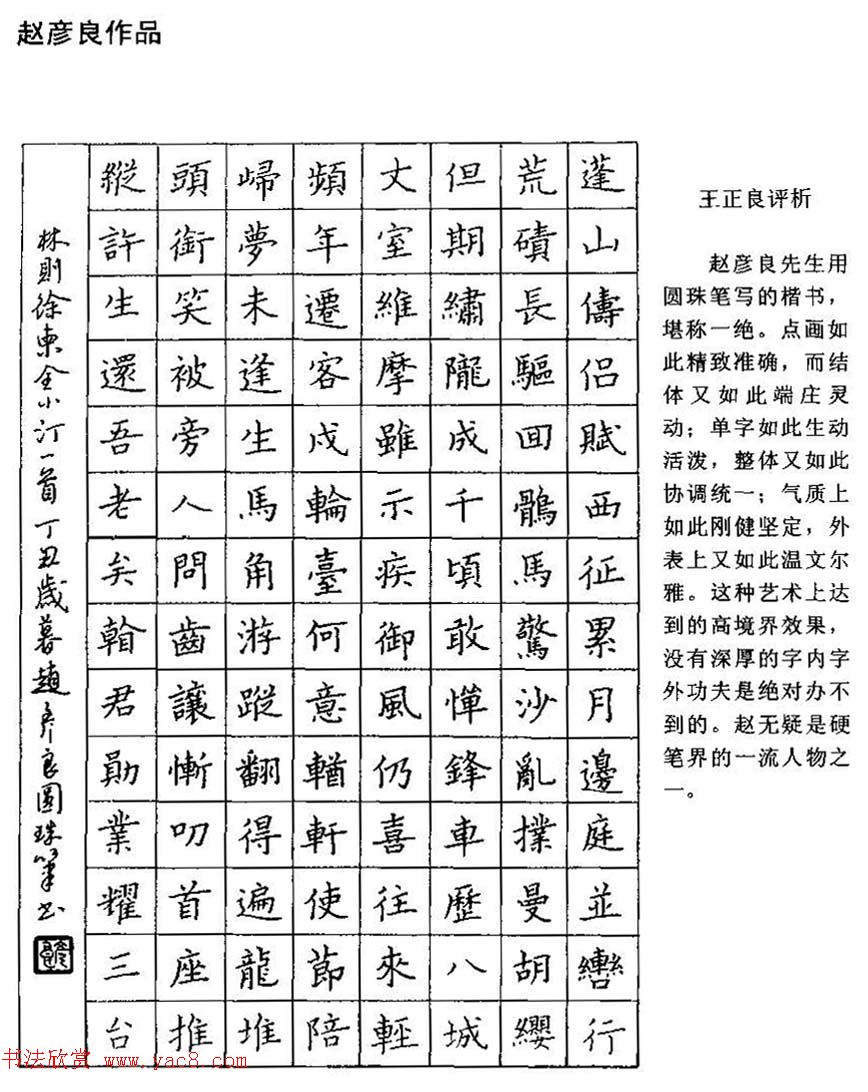 赵彦良作品
蓬山儔侶賦西征累月邊庭並轡行
荒磧長驅回鶻馬驚沙亂撲曼胡纓
但期繡隴成千頃敢憚鋒車歷八城
丈室維摩雖示疾御風仍喜往來輕
頻年遷客戍輪臺何意輶軒使節陪
歸夢未逢生馬角游蹤翻得遍龍堆
頭銜笑被旁人問齒讓慚叨首座推
縱許生還吾老矣君勛業耀三台
林則徐東全小汀一首丁丑歲暮趙彥良圓珠筆书
王正良评析
赵彦良先生用
圆珠笔写的楷书，
堪称一绝。点画如
此精致准确，而结
体又如此端庄灵
动；单字如此生动
活泼，整体又如此
协调统一；气质上
如此刚健坚定，外
表上又如此温文尔
雅。这种艺术上达
到的高境界效果，
没有深厚的字内字
外功夫是绝对办不
到的。赵无疑是硬
笔界的一流人物之
一。
书法欣赏 www.yac8.com